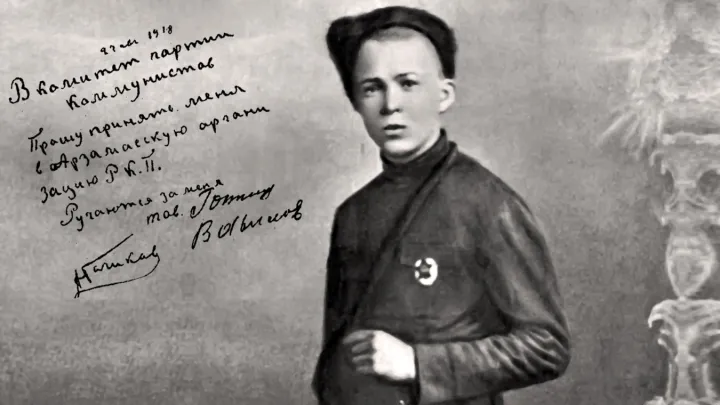 1918
В комитет партии
Коммунистов
Прошу принять меня
в Арзамаскую органи
зацию Р.К.П.
Ручаются за меня
тов.
Вавилов
Голиков